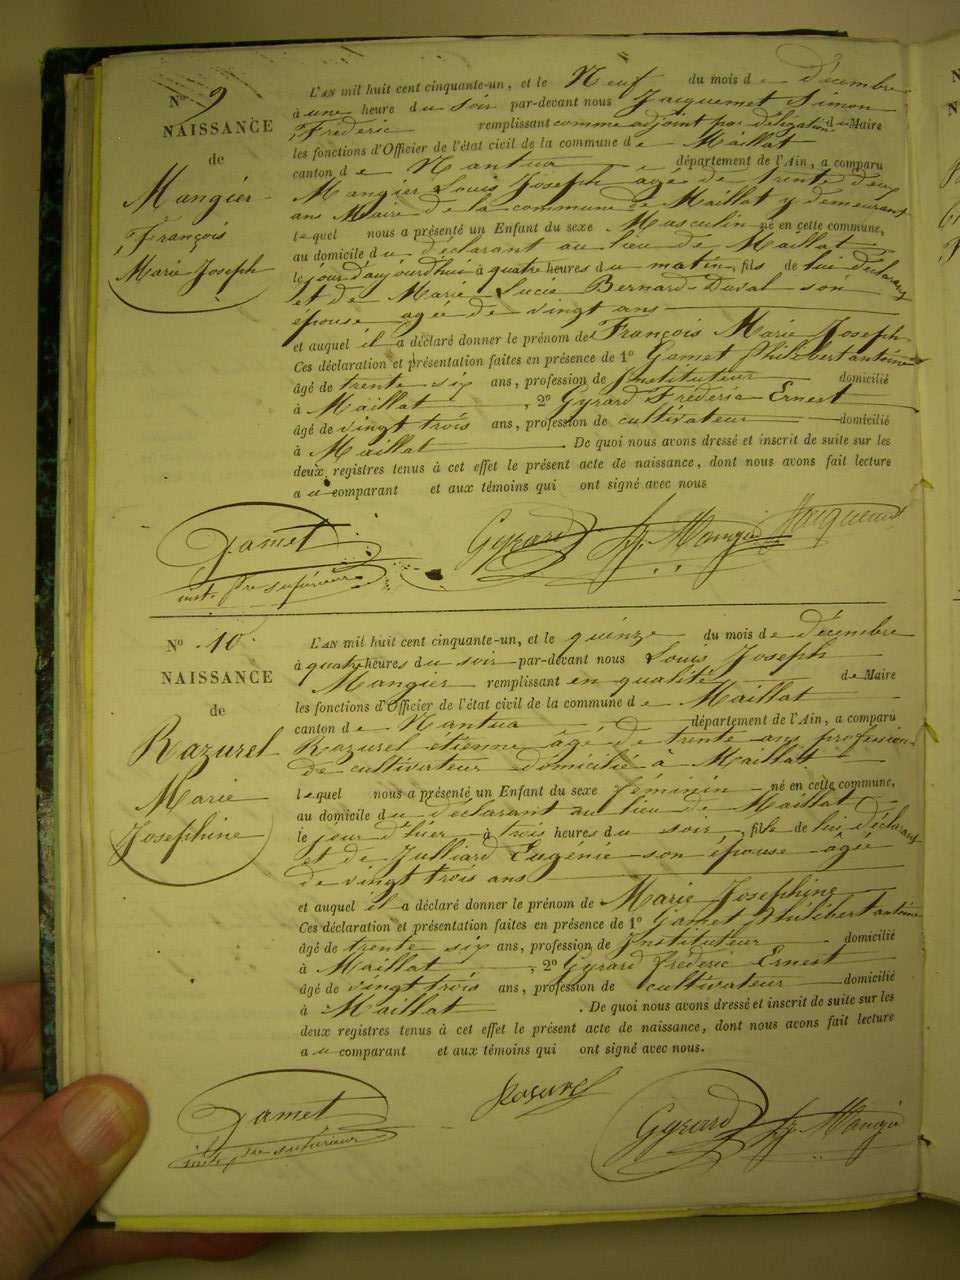 N° 9
NAISSANCE
de
Mangier
François
Marie Joseph
L'AN mil huit cent cinquante-un, et le Neuf du mois de décembre
à une heure du soir par-devant nous Jacquemet Simon
Frédéric remplissant comme adjoint par délégation du Maire
les fonctions d'Officier de l'état civil de la commune de Maillat
canton de Nantua département de l'Ain, a comparu
Mangier Louis Joseph âgé de trente deux
ans Maire de la commune de Maillat y demeurant
lequel nous a présenté un Enfant du sexe Masculin né en cette commune,
au domicile du déclarant au lieu de Maillat
le jour d'aujourd'hui à quatre heures du matin, fils de lui déclarant
et de Marie Lucie Bernard-Duval son
épouse agée de vingt ans
et auquel il a déclaré donner le prénom de François Marie Joseph
Ces déclaration et présentation faites en présence de 1° Gamet Philibert antoine
âgé de trente six ans, profession de Instituteur domicilié
à Maillat , 2° Gyrard Frédéric Ernest
âgé de vingt trois ans, profession de cultivateur domicilié
à Maillat . De quoi nous avons dressé et inscrit de suite sur les
deux registres tenus à cet effet le présent acte de naissance, dont nous avons fait lecture
au comparant et aux témoins qui ont signé avec nous
Gamet
inst. pre supérieur
Gyrard Mangier Jacquemet
N° 10
NAISSANCE
de
Razurel
Marie
Josephine
L'AN mil huit cent cinquante-un, et le quinze du mois de décembre
à quatre heures du soir par-devant nous Louis Joseph
Mangier remplissant en qualité de Maire
les fonctions d'Officier de l'état civil de la commune de Maillat
canton de Nantua département de l'Ain, a comparu
Razurel étienne âgé de trente ans profession
de cultivateur domicilié à Maillat
lequel nous a présenté un Enfant du sexe féminin né en cette commune,
au domicile du déclarant au lieu de Maillat
le jour d'hier à trois heures du soir, fille de lui déclarant
et de Julliard Eugénie son épouse agée
de vingt trois ans
et auquel il a déclaré donner le prénom de Marie Josephine
Ces déclaration et présentation faites en présence de 1° Gamet Philibert antoine
âgé de trente six ans, profession de Instituteur domicilié
à Maillat , 2° Gyrard frédéric Ernest
âgé de vingt trois ans, profession de cultivateur domicilié
à Maillat . De quoi nous avons dressé et inscrit de suite sur les
deux registres tenus à cet effet le présent acte de naissance, dont nous avons fait lecture
au comparant et aux témoins qui ont signé avec nous.
Gamet
inst. pre supérieur
Rasurel
Gyrard Mangier